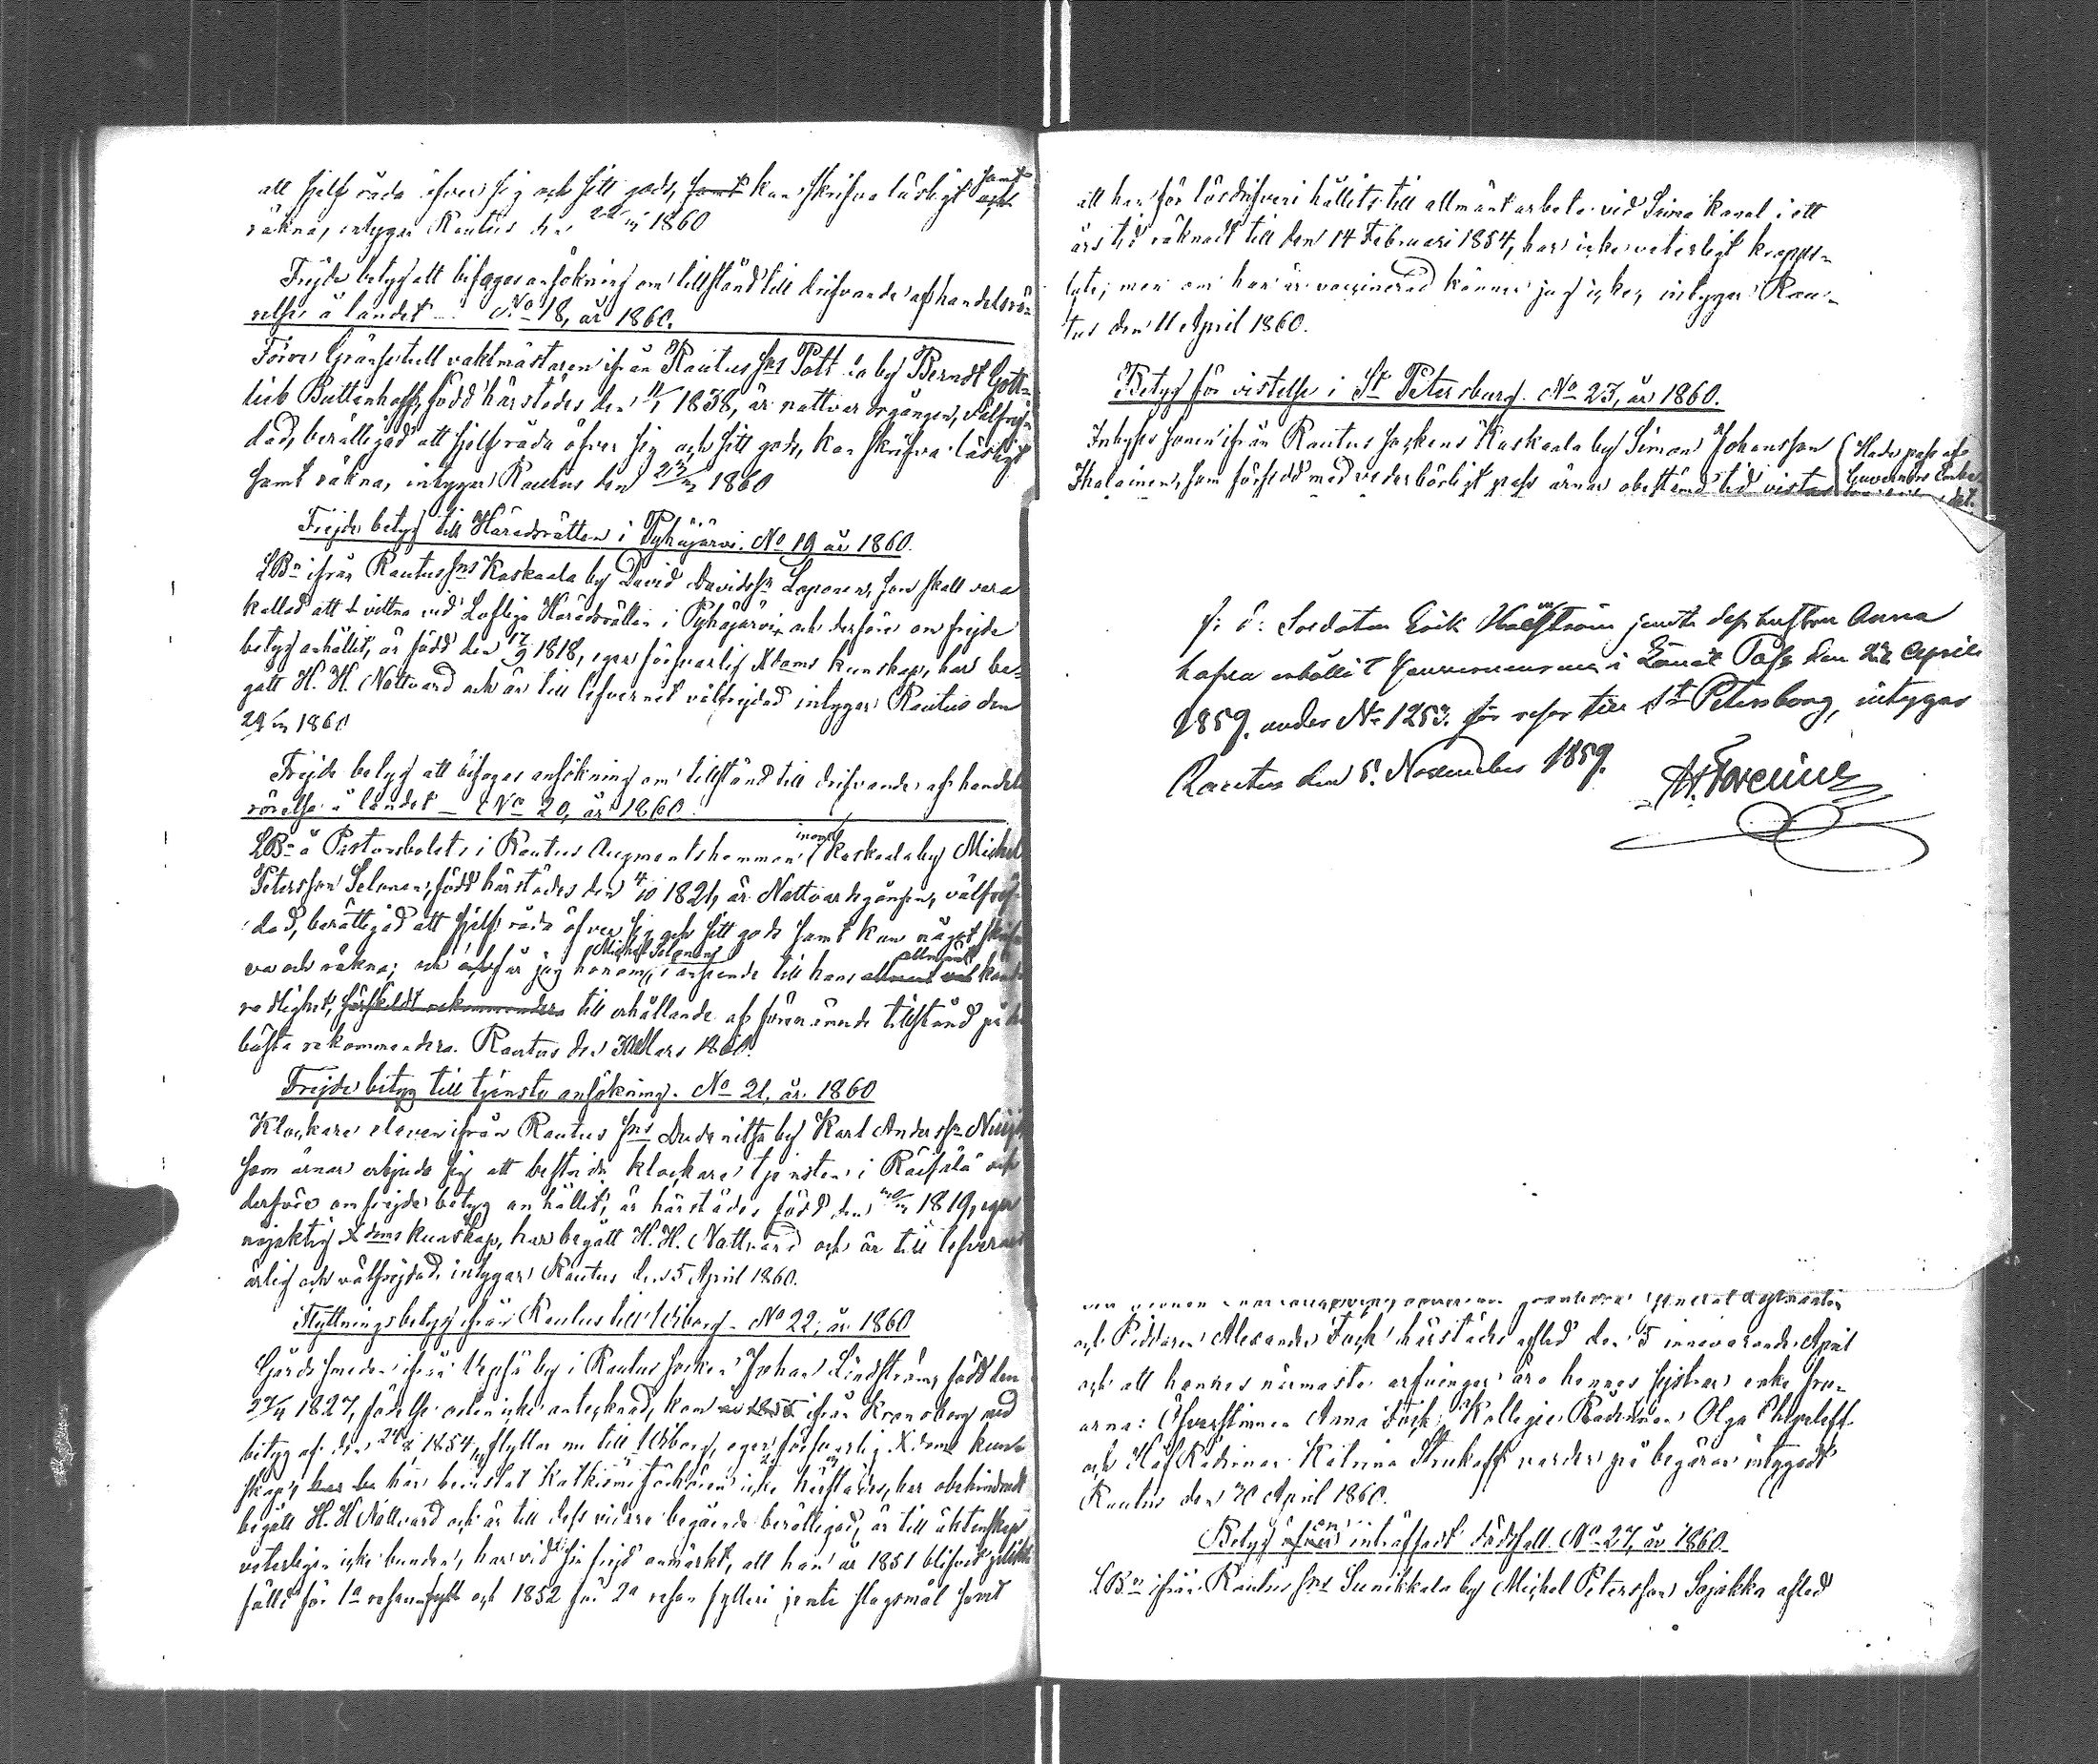 att sjelf råda öfver sig och sitt gods, samt kan skrifva läsligt samt och
räkna, intygar Rautus den 22/III 1860
Frejde betyg att bifogas ansökning om tillstånd till drifvande af handelsrö-
relse å landet - No 18, år 1860.
Förre Gränsetull vaktmästaren ifrån Rautus sns by Berndt Gott-
lieb Buttenhoff, född härstädes den 11/1 1838, är nattvardsgången, välfrej-
dad, berättigad att sjelf råda öfver sig och sitt gods, kan skrifva läsligt
samt räkna, intygar Rautus den 23/III 1860
Frejde betyg till Häradsrätten i Pyhäjärvi. No 19 år 1860.
LBn ifrån Rautus sns Kaskaala by David Davidssn Loponen, som skall vara
kallad att vittna vid Lofliga Häradsrätten i Pyhäjärvi och derföre om frejde
betyg anhållit, är född den 17/9 1818, eger försvarlig Xdoms kunskap, har be-
gått H. H. Nattvard och är till lefvernet välfrejdad intygar Rautus den
29/III 1860
Frejde betyg att bifogas ansökning om tillstånd till drifvande af handels
rörelse å landet - No 20, år 1860.
LBn å Pastorsbolets i Rautus Augmentshemman inom Kaskaala by Michel
Petersson Selonen, född härstädes den 4/10 1821, är Nattvardsgången, välfrej-
dad, berättigad att sjelf råda öfver sig och sitt gods samt kan något skrif-
va och räkna; och får jag honom, Michel Selonen, i anseende till hans allmänt kända
redlighet, särskildt rekommendera till erhållande af förenämnde tillstånd på det
bästa rekommendera. Rautus den 30 Mars 1860.
Frejde betyg till tjenste ansökning. No 21, år 1860
Klockare eleven ifrån Rautus sns by Karl Anderssn
som ärnar erbjuda sig att bestrida klockare tjensten i Räisälä och
derföre om frejde betyg anhållit, är härstädes född den 1819, eger
nöjaktig Xdoms kunskap, har begått H. H. Nattvard och är till lefvernet
ärlig och välfrejdad, intygar Rautus den 5 April 1860.
Flyttningsbetyg ifrån Rautus till Wiborg - No 22, år 1860
Gårds smeden ifrån by i Rautus socken Johan Lindström, född den
1827, födelse orten icke antecknad, kom ifrån Kronoborg med
betyg af den 1854, flyttar nu till Wiborg, eger försvarlig Xdoms kun-
skap, har bevistat icke härstädes, har obehindradt
begått H. H Nattvard och är till dess vidare begående berättigad, är till äktenskap
veterligen icke bunden, har vid sin frejd anmärkt, att han år 1851 blifvit
fälld för 1a resan och 1852 för 2a resan fylleri jemte slagsmål samt
att han för lösdrifveri hållits till allmänt arbete vid Saima kanal i ett
års tid räknadt till den 14 Februari 1854, har icke veterligt kropps-
lyte; men om han är vaccinerad känner jag icke, intygar Rau-
tus den 11 April 1860.
Betyg för vistelse i St Petersburg. No 23, år 1860.
Inhyses sonen ifrån Rautus sockens Kaskaala by Simon Johansson
Ihalainen, som försedd med vederbörligt pass ärnar obestämd tid vistas
(Hade pass af
Guvernörs Embe-
det.
f: d: Soldaten Erik jemte dess hustru Anna
hafva erhållit Pass den April
1859. under No 1253. för resor till St Petersborg, intygar
Rautus den 5. November 1859.
och Riddaren Alexander Fock härstädes afled den 5 innevarande April
och att hennes närmaste arfvingar äro hennes systrar enke fru-
arna: Öfverstinnan Anna Fock, Kollegie Rådinnan Olga
och Hof Rådinnan Katrina varder på begäran intygadt
Rautus den 20 April 1860.
Betyg om inträffadt dödsfall. No 27, år 1860.
LBn ifrån Rautus sns Sunikkala by Michel Petersson afled